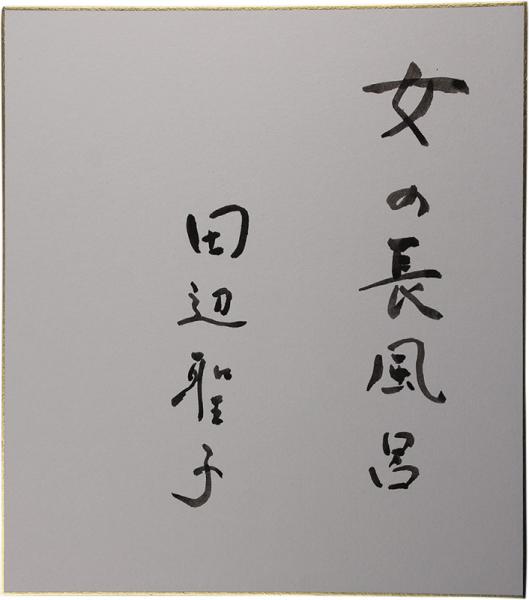 女の長風呂
田辺聖子